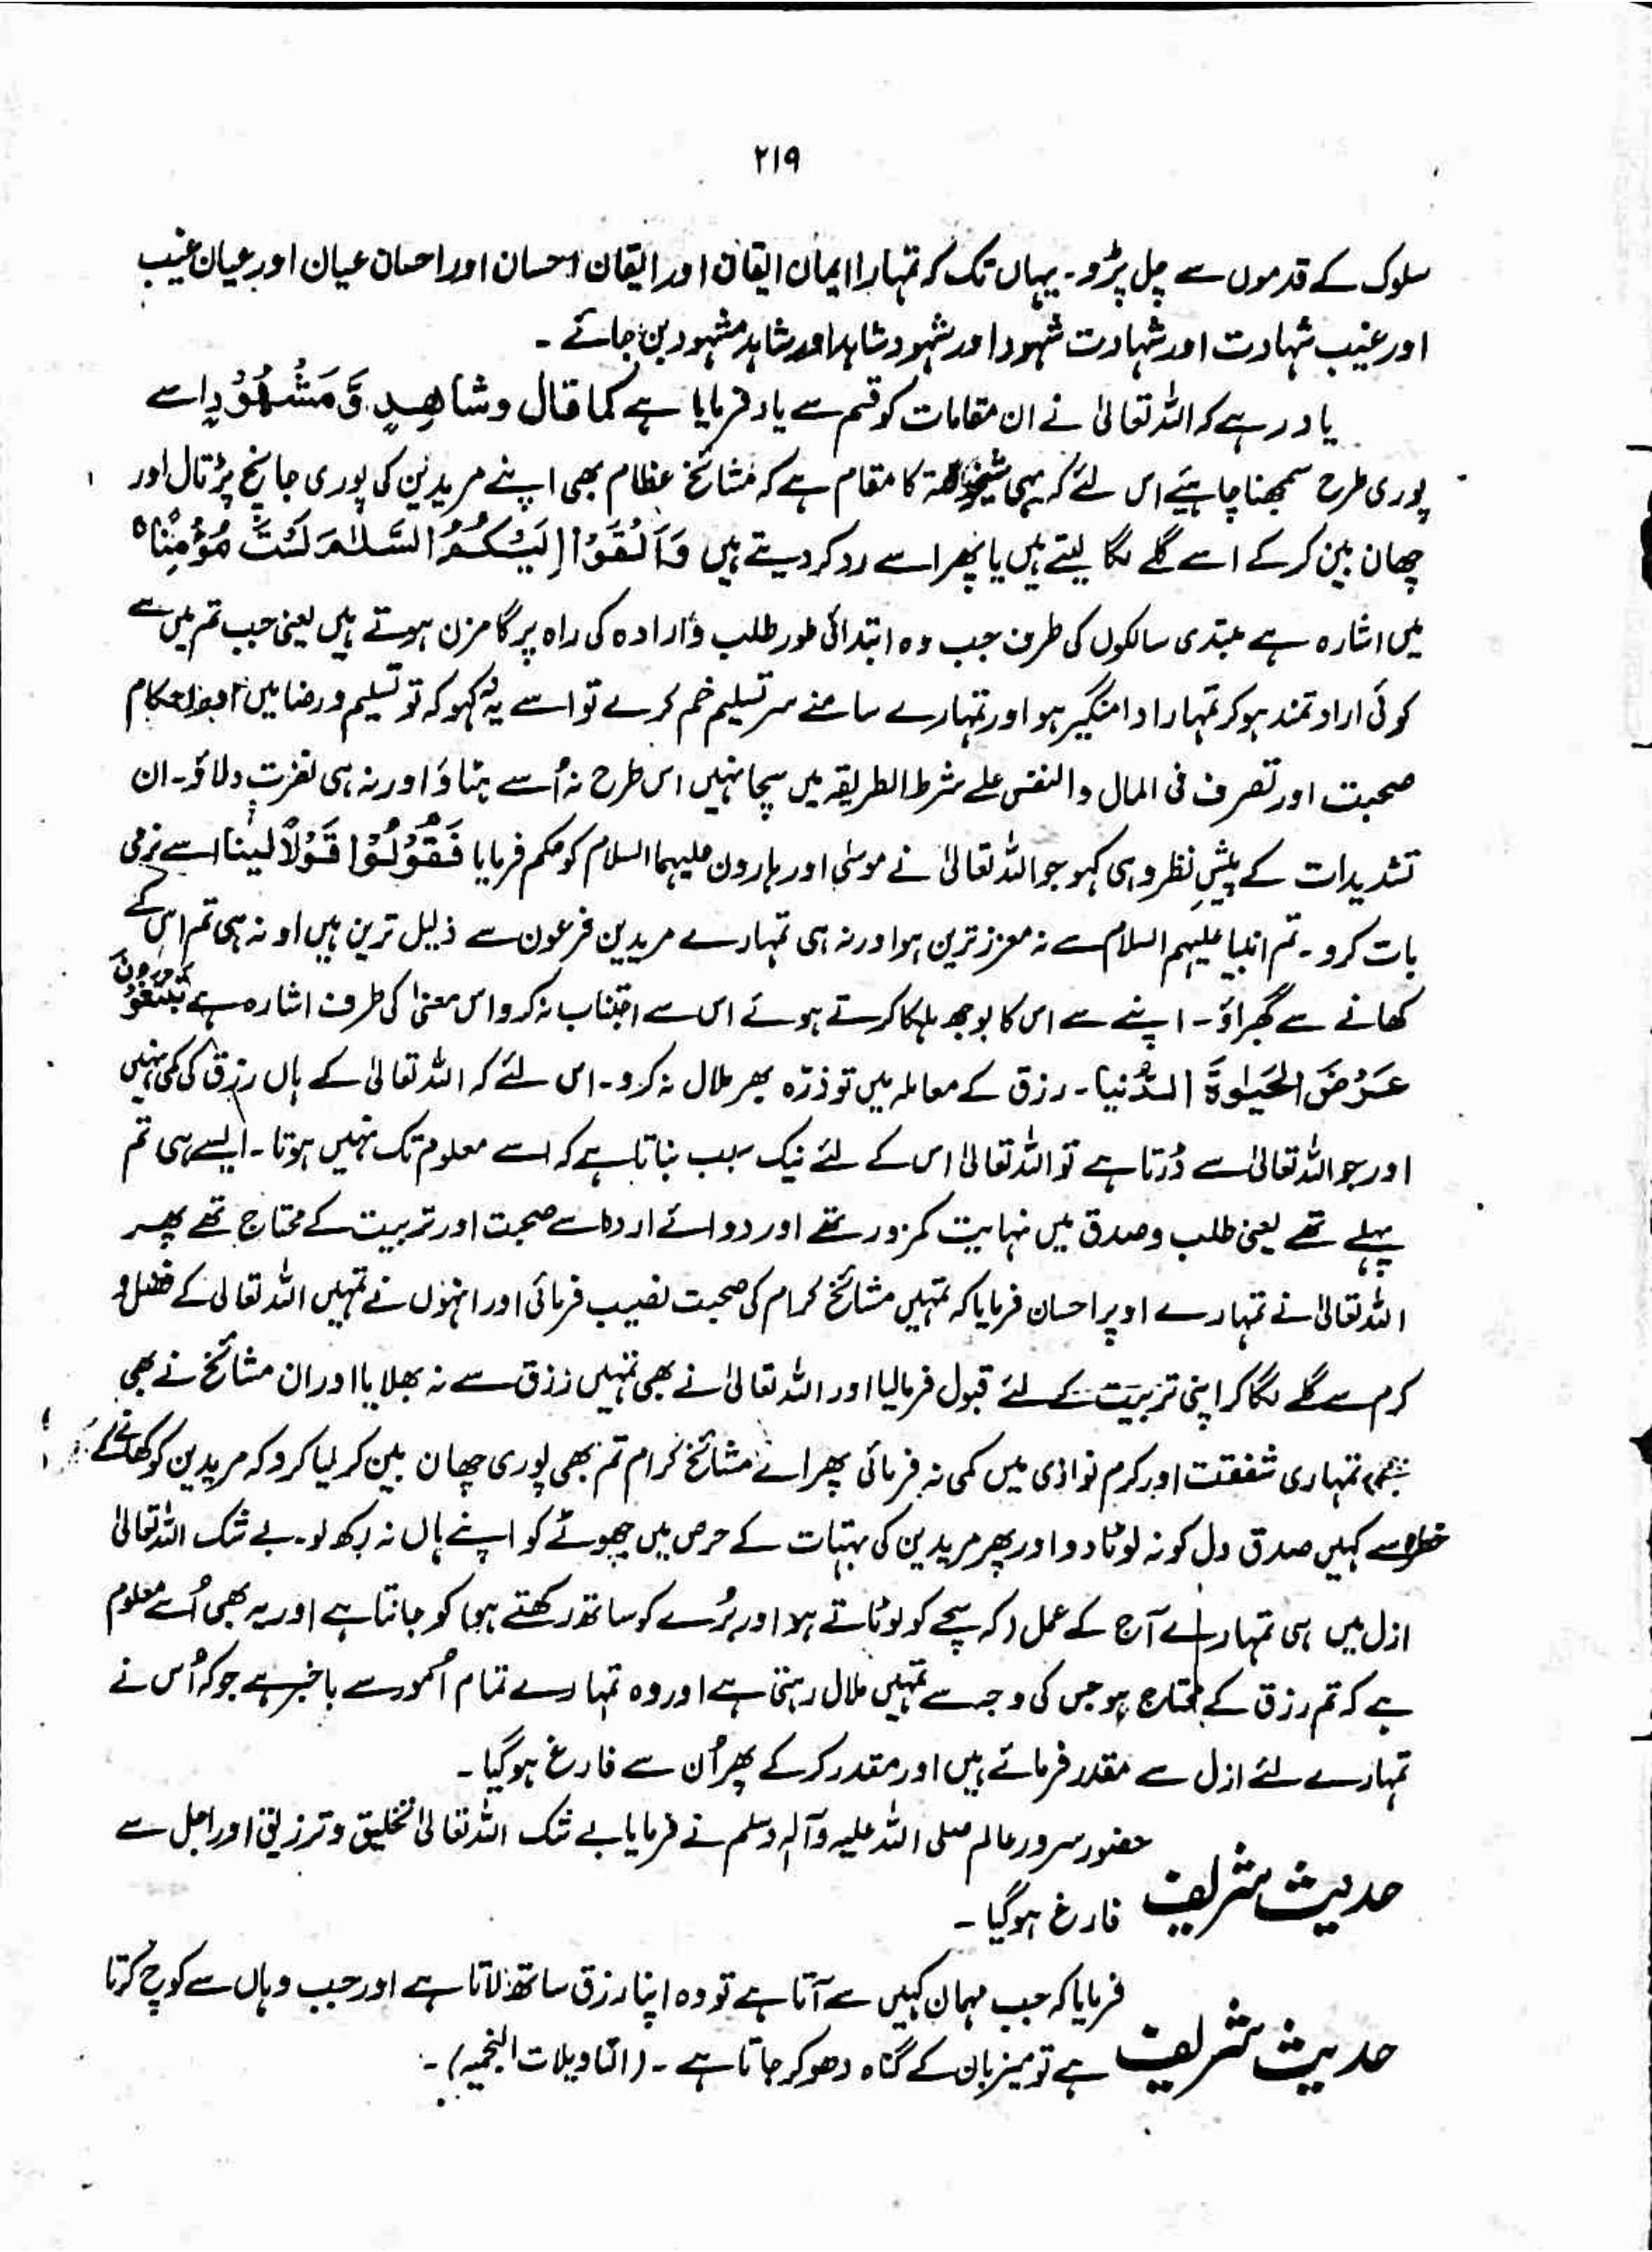 ۲۱۹
سلوک کے قدموں سے چل پڑو۔ یہاں تک کہ تمہارا ایمان ایقان اور ایقان احسان اور احسان عیان اور عیان غیب
اور غیب شہادت اور شہادت شہود اور شہود شاہد اور شاہد مشہود بن جائے ۔
یاد رہے کہ اللہ تعالیٰ نے ان مقامات کو قسم سے یاد فرمایا ہے کما قال و شَاهِدٍ وَّمَشْهُوْدٍ اسے
پوری طرح سمجھنا چاہیئے اس لئے کہ یہی کا مقام ہے کہ مشائخ عظام بھی اپنے مریدین کی پوری جانچ پڑتال اور
چھان بین کر کے اسے گلے لگا لیتے ہیں یا پھر اسے رد کر دیتے ہیں وَاَلْقَوْا اِلَيْكُمُ السَّلٰمَ لَسْتَ مُؤْمِنًا ه
میں اشارہ ہے مبتدی سالکوں کی طرف جب وہ ابتدائی طور طلب و ارادہ کی راہ پر گامزن ہوتے ہیں یعنی جب تم میں سے
کوئی ارادتمند ہو کر تمہارا دامنگیر ہو اور تمہارے سامنے سر تسلیم خم کرے تو اسے یہ نہ کہو کہ تو تسلیم و رضا میں احکام
صحبت اور تصرف فی المال والنفس علے شرط الطریقہ میں سچا نہیں اس طرح نہ اُسے ہٹاؤ اور نہ ہی نفرت دلاؤ۔ ان
تشدیدات کے پیشِ نظر وہی کہو جو اللہ تعالیٰ نے موسیٰ اور ہارون علیہما السلام کو حکم فرمایا فَقُوْلُوْا قَوْلًا لَيِّنًا اسے نرمی
بات کرو ۔ تم انبیا علیہم السلام سے نہ معزز ترین ہو اور نہ ہی تمہارے مریدین فرعون سے ذلیل ترین ہیں او نہ ہی تم اس کے
کھانے سے گھبراؤ۔ اپنے سے اس کا بوجھ ہلکا کرتے ہوئے اس سے اجتناب نہ کرو اس معنیٰ کی طرف اشارہ ہے تبتغون
عَرَضَ الْحَيٰوةَ الدُّنيا۔ رزق کے معاملہ میں تو ذرّہ بھر ملال نہ کرو۔ اس لئے کہ اللہ تعالیٰ کے ہاں رزق کی کمی نہیں
اور جو اللہ تعالیٰ سے ڈرتا ہے تو اللہ تعالیٰ اس کے لئے نیک سبب بناتا ہے کہ اسے معلوم تک نہیں ہوتا۔ ایسے ہی تم
پہلے تھے یعنی طلب و صدق میں نہایت کمزور تھے اور صحبت اور تربیت کے محتاج تھے پھر
اللہ تعالیٰ نے تمہارے اوپر احسان فرمایا کہ تمہیں مشائخ کرام کی صحبت نصیب فرمائی اور انہوں نے تمہیں اللہ تعالیٰ کے فضل و
کرم سے گلے لگا کر اپنی تربیت کے لئے قبول فرمالیا اور اللہ تعالیٰ نے بھی تمہیں رزق سے نہ بھلایا اور ان مشائخ نے بھی
تمہاری شفقت اور کرم نوازی میں کمی نہ فرمائی پھر اے مشائخ کرام تم بھی پوری چھان بین کر لیا کرو کہ مریدین کو کھانے کے
خطرہ سے کہیں صدق دل کو نہ لوٹا دو اور پھر مریدین کی بہتات کے حرص میں جھوٹے کو اپنے ہاں نہ رکھ لو۔ بے شک اللہ تعالیٰ
ازل میں ہی تمہارے آج کے عمل (کہ سچے کو لوٹاتے ہو اور بُرے کو ساتھ رکھتے ہو) کو جانتا ہے اور یہ بھی اُسے معلوم
ہے کہ تم رزق کے محتاج ہو جس کی وجہ سے تمہیں ملال رہتی ہے اور وہ تمہارے تمام اُمور سے باخبر ہے جو کہ اُس نے
تمہارے لئے ازل سے مقدر فرمائے ہیں اور مقدر کر کے پھر اُن سے فارغ ہو گیا ۔
حدیث شریف حضور سرور عالم صلی اللہ علیہ وآلہ وسلم نے فرمایا بے شک اللہ تعالیٰ تخلیق و ترزیق اور اجل سے
فارغ ہو گیا ۔
حدیث شریف فرمایا کہ جب مہمان کہیں سے آتا ہے تو وہ اپنا رزق ساتھ لاتا ہے اور جب وہاں سے کوچ کرتا
ہے تو میزبان کے گناہ دھو کر جاتا ہے ۔ (التاویلات النجمیہ) ۔